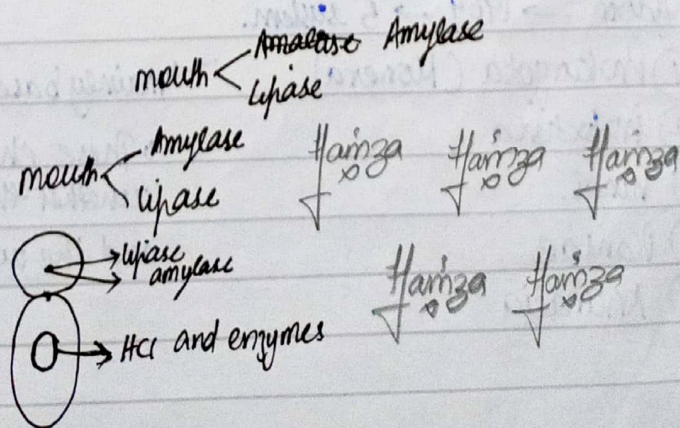 mouth
Amalase Amylase
Lipase
mouth
Amylase
Lipase
Hamza Hamza Hamza
lipase
amylase
Hamza Hamza
HCl and enzymes